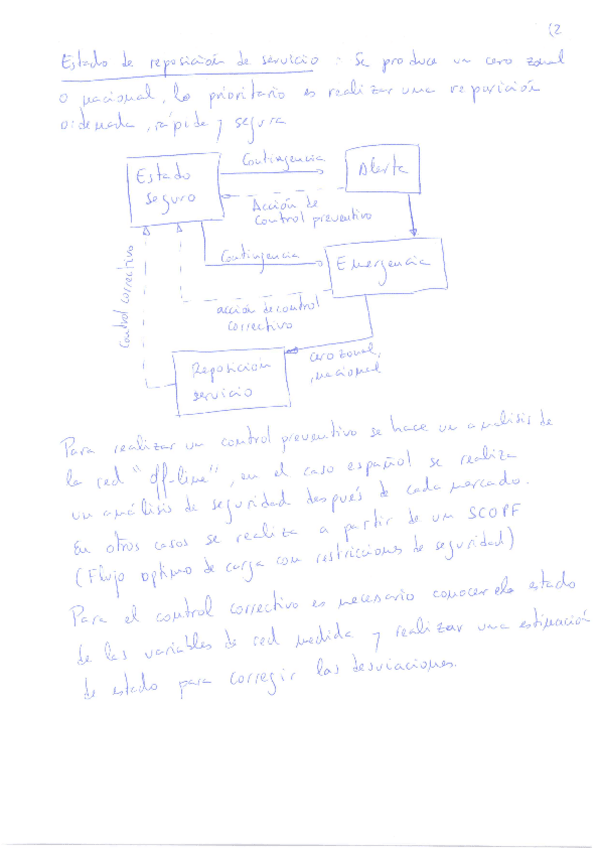 (2
Estado de reposición de servicio : Se produce un cero zonal
o nacional, lo prioritario es realizar una reposición
ordenada, rápida y segura
Estado
seguro
Contingencia
Alerta
Acción de
control preventivo
Contingencia
Emergencia
acción de control
correctivo
Control correctivo
Reposición
servicio
cero zonal,
nacional
Para realizar un control preventivo se hace un análisis de
la red "off-line", en el caso español se realiza
un análisis de seguridad después de cada mercado.
En otros casos se realiza a partir de un SCOPF
(Flujo optimo de carga con restricciones de seguridad)
Para el control correctivo es necesario conocer el estado
de las variables de red medida y realizar una estimación
de estado para corregir las desviaciones.